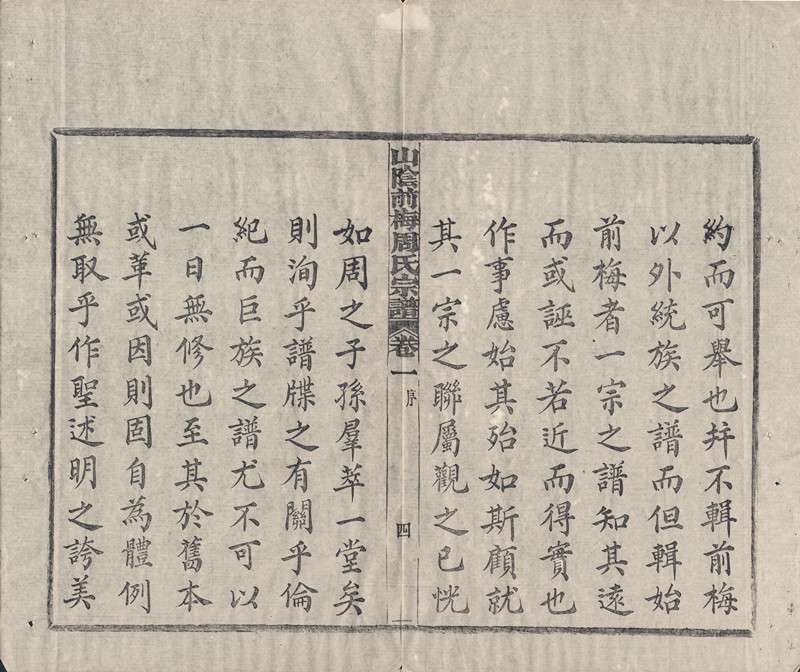 約而可舉也并不輯前梅
以外統族之譜而但輯始
前梅者一宗之譜知其遠
而或誣不若近而得實也
作事慮始其殆如斯顧就
其一宗之聯屬觀之已恍
山陰前梅周氏宗譜 卷一 序 四
如周之子孫羣萃一堂矣
則洵乎譜牒之有關乎倫
紀而巨族之譜尤不可以
一日無修也至其於舊本
或革或因則固自為體例
無取乎作聖述明之誇美